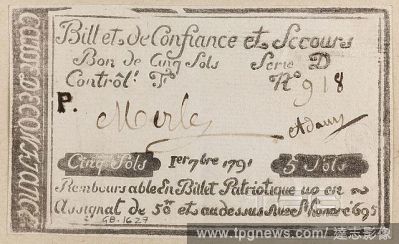 Billet de Confiance et Secours
Bon de Cinq Sols Serie D
Contrôl. Fo No 918
P. Merle
Adam
Cinq Sols 1er 7bre 1791 5 Sols
Remboursable en Billet Patriotique ou en
Assignat de 50 et au dessus Rue St Honoré 695
GB-1627
www.tpgnews.com/ 達志影像